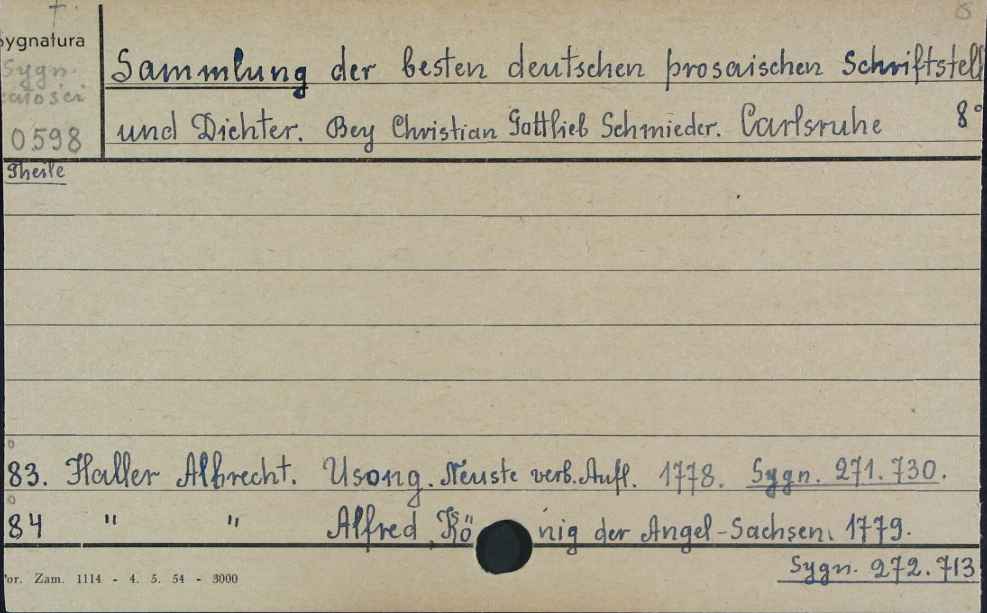 ygnatura
Sygn.
całości
0598
Sammlung der besten deutschen prosaischen Schriftstell
und Dichter. Bey Christian Gottlieb Schmieder. Carlsruhe 8°
Theile
83. Haller Albrecht. Usong. Neuste verb. Aufl. 1778. Sygn. 271.730.
84 " " Alfred, König der Angel-Sachsen. 1779.
Sygn. 272.713
or. Zam. 1114 - 4. 5. 54 - 3000